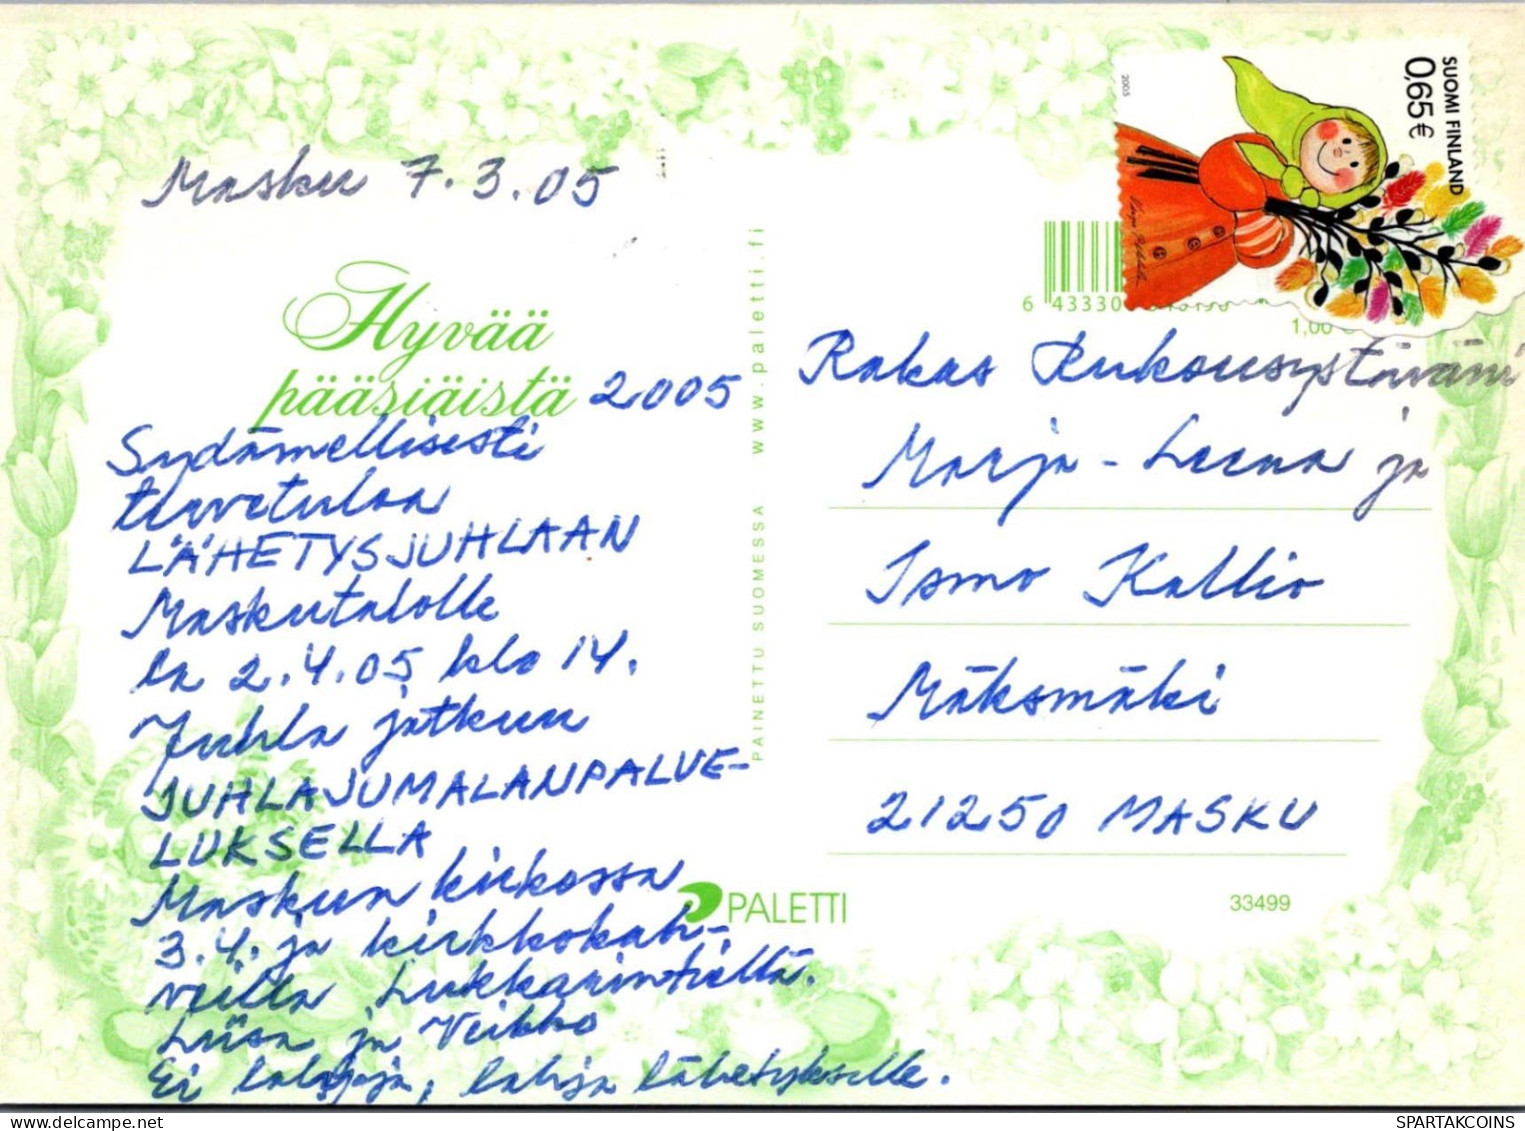 Masku 7.3.05
Hyvää
pääsiäistä 2005
Sydämellisesti
tervetuloa
LÄHETYSJUHLAAN
Maskutalolle
la 2.4.05 klo 14.
Juhla jatkuu
JUHLAJUMALANPALVE-
LUKSELLA
Maskun kirkossa
3.4. ja kirkkokah-
veilla Lukkarintiellä.
Liisa ja Veikko
Ei lahjoja, lahja lähetykselle.
PAINETTU SUOMESSA www.paletti.fi
PALETTI
2005
SUOMI FINLAND
0,65€
6 43330
1,00
Rakas Rukousystäväni
Marja-Leena ja
Ismo Kallio
Mäksmäki
21250 MASKU
33499
SPARTAKCOINS